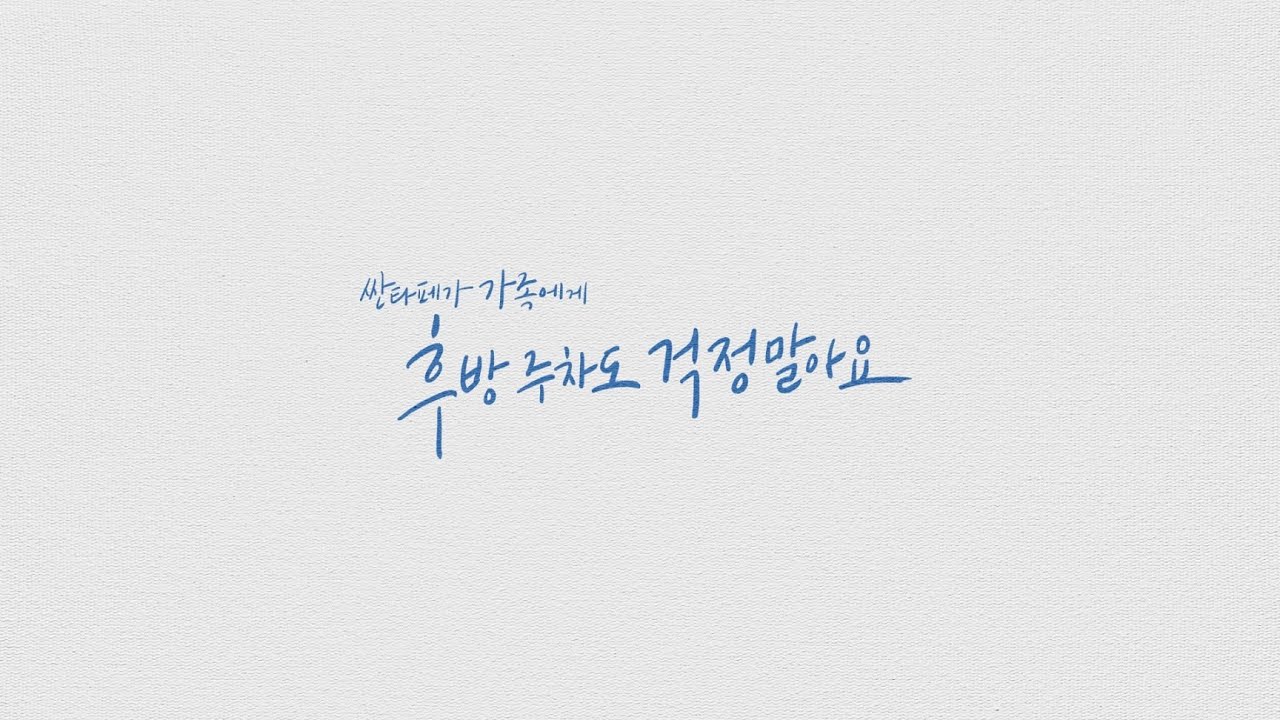 싼타페가 가족에게
후방 주차도 걱정말아요